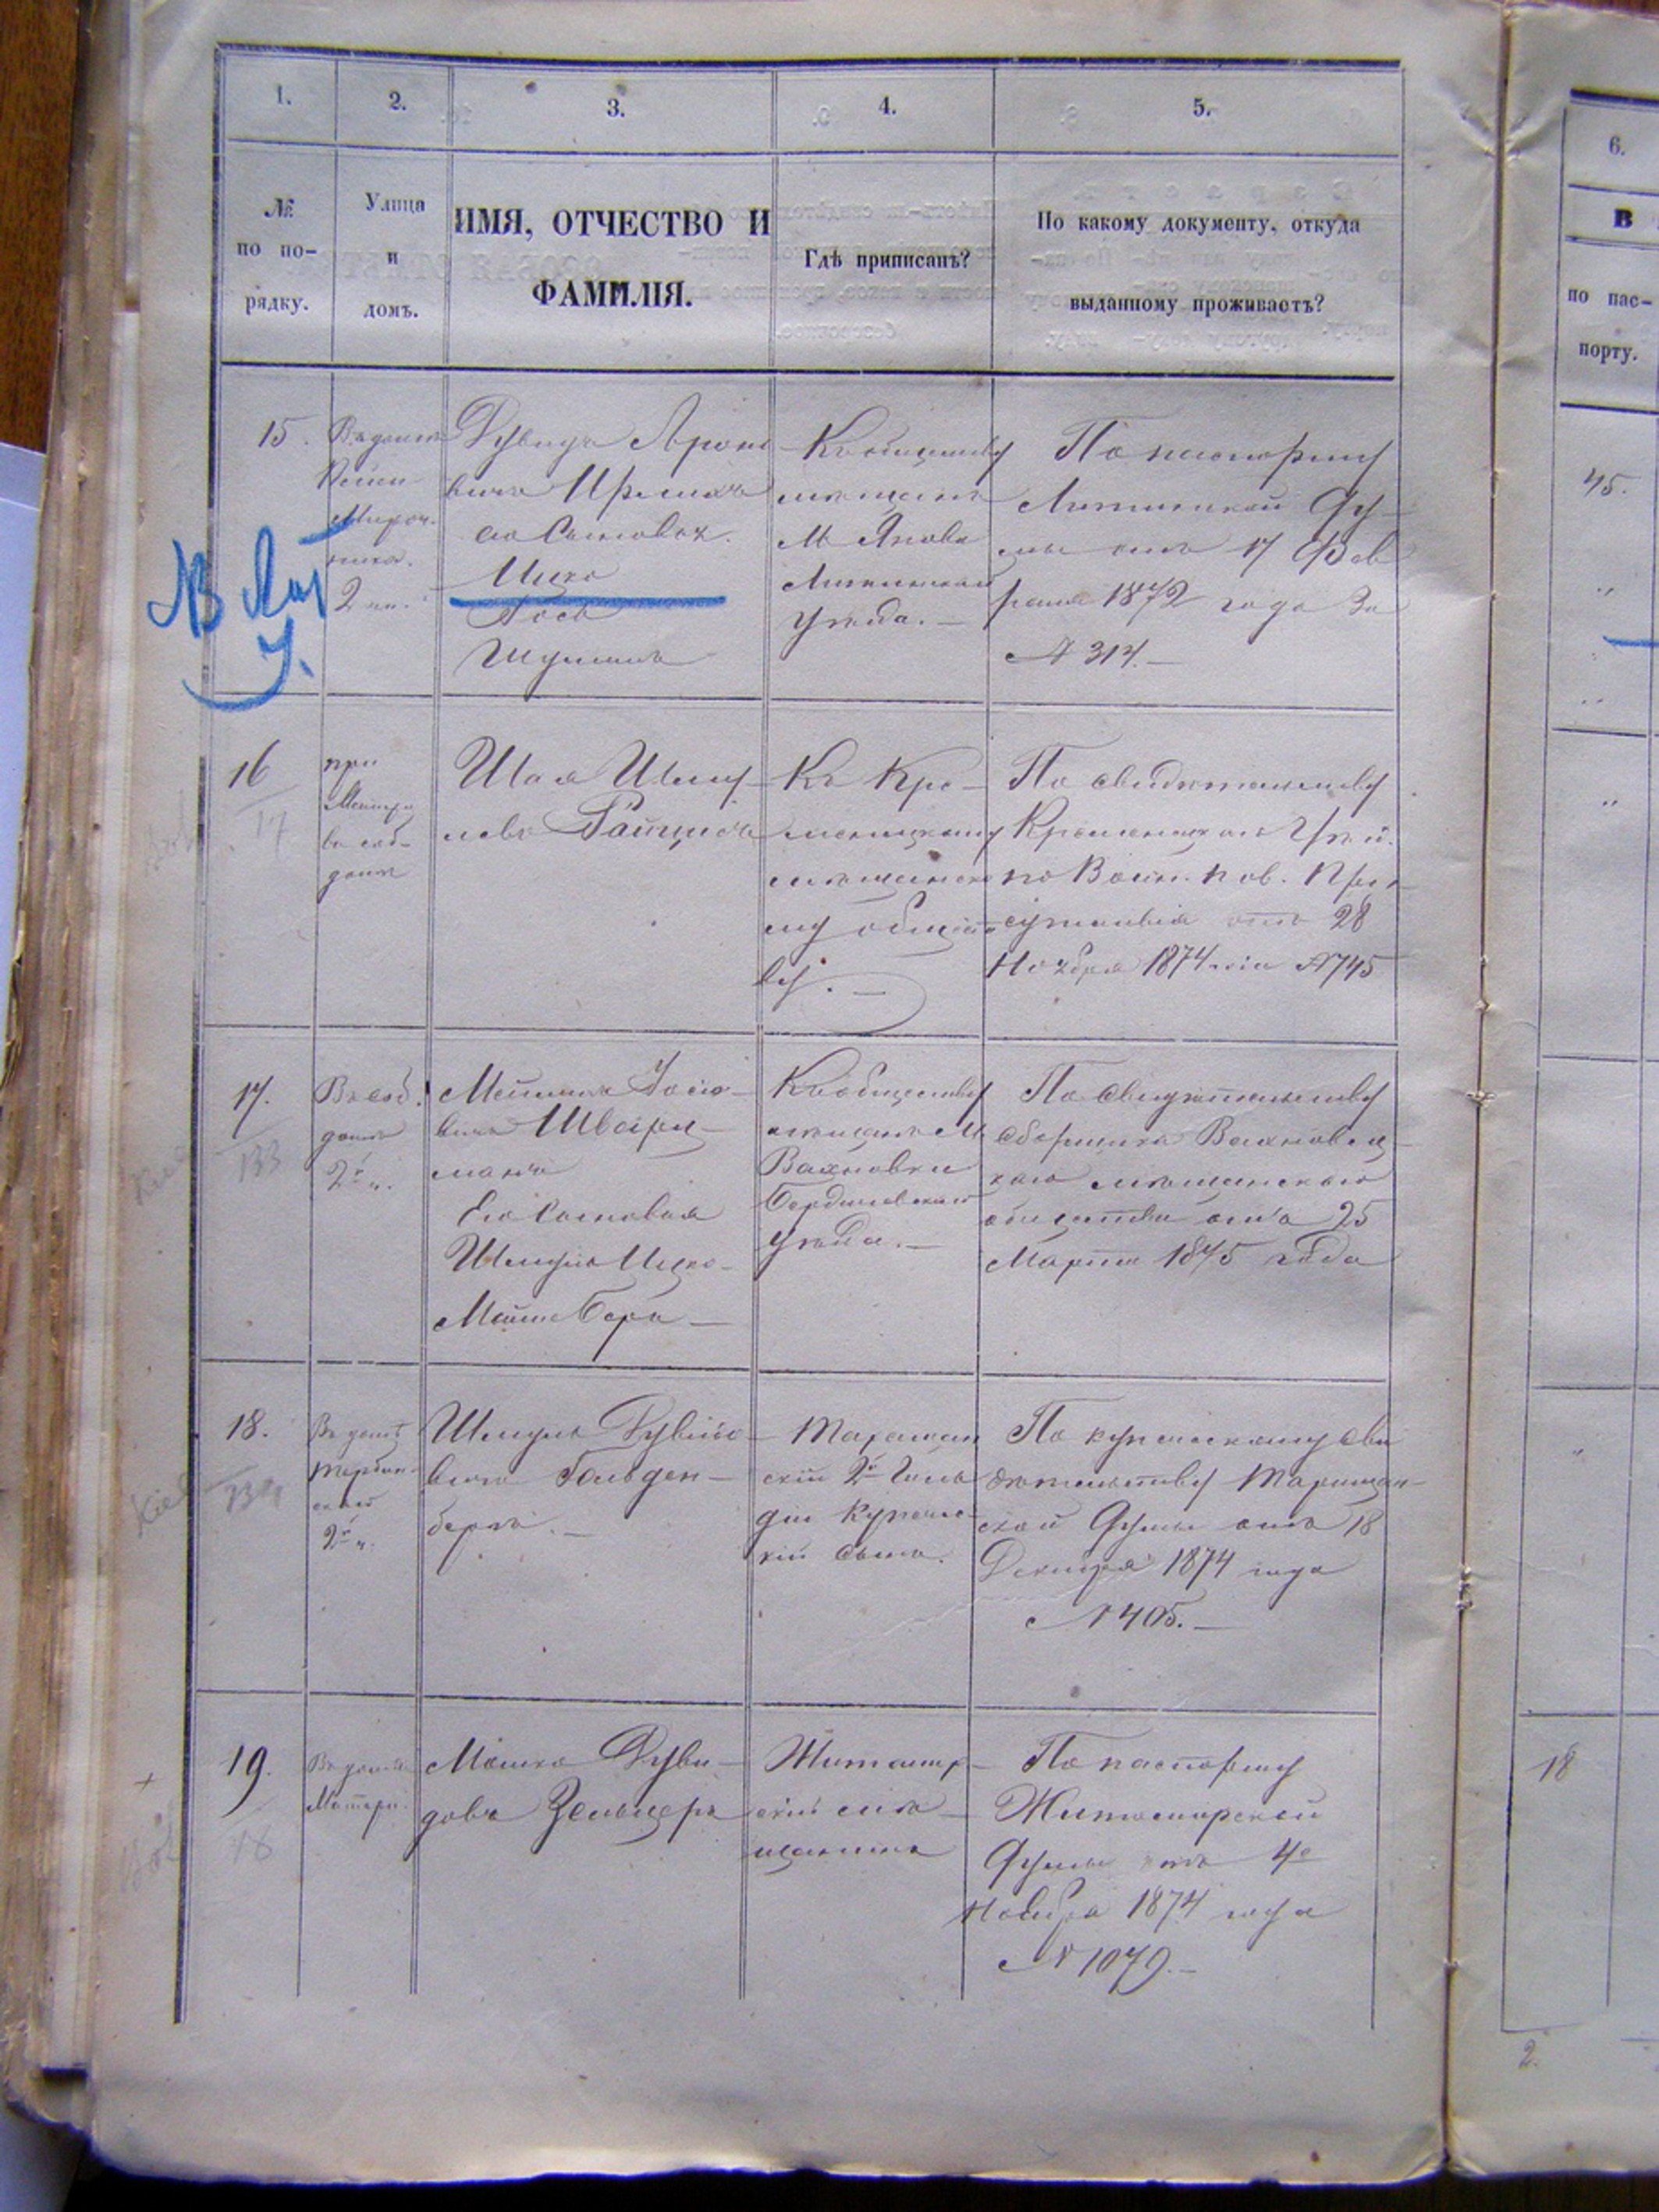 1.
2.
3.
4.
5.
№
по по-
рядку.
Улица
и
домъ.
ИМЯ, ОТЧЕСТВО И
ФАМИЛІЯ.
Гдѣ приписанъ?
По какому документу, откуда
выданному проживаетъ?
15.
Въ домѣ
2 ч.
Дувидъ Ароно
вичъ
его Сыновья.
Ицко
Іось
Шулимъ
Къ обществу
мѣщанъ
М Янова
Литинскаго
Уѣзда. —
По паспорту
Литинской Ду-
мы отъ 17 Фев
раля 1872 года За
№ 314. —
16
17
при
Матери
въ соб-
домѣ
Шая Шму-
левъ
Къ Кре-
менецкому
мѣщанско
му общест-
ву. —
По свидѣтельству
Кременецкаго Уѣз.
по Воин. пов. При
сутствія отъ 28
Ноября 1874 года №745
17.
133
Въ соб.
домѣ
2й ч.
Іосіо-
вичъ Шварц-
манъ
Его Сыновья
Шмуль Ицко-
Мошко Беръ —
Къ обществу
мѣщанъ М.
Вахновки
Бердичевскаго
Уѣзда. —
По Свидѣтельству
Сборщика Вахновец-
каго мѣщанскаго
общества отъ 25
Марта 1875 года
18.
134
Въ домѣ
2й ч.
Шмуль Дувидо-
вичъ Гольден-
бергъ. —
Таращан
скій 2й Гиль
діи Купече-
скій Сынъ.
По купеческому сви
дѣтельству Таращан-
ской Думы отъ 18
Декабря 1874 года
№ 405. —
19.
18
Въ домѣ
Матери.
Мошко Дуви-
довъ Зельцеръ
Житомир-
скій мѣ-
щанинъ
По паспорту
Житомирской
Думы отъ 4го
Ноября 1874 года
№ 1079. —
6.
В
по пас-
порту.
45.
18
2.